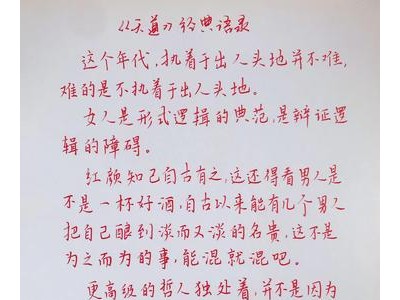 《天道》经典语录
这个年代，执着于出人头地并不难，
难的是不执着于出人头地。
女人是形式逻辑的典范，是辩证逻
辑的障碍。
红颜知己自古有之，这还得看男人是
不是一杯好酒，自古以来能有几个男人
把自己酿到淡而又淡的名贵，这不是
为之而为的事，能混就混吧。
更高级的哲人独处着，并不是因为